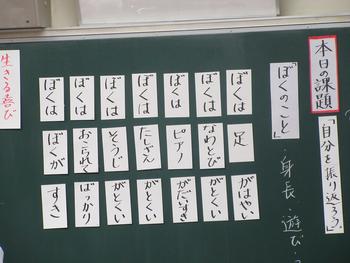 本日の課題
「自分を振り返ろう。」
「ぼくのこと」
・身長・遊び・
ぼくは 足 がはやい
ぼくは なわとび がとくい
ぼくは ピアノ がだいすき
ぼくは たしざん がとくい
ぼくは そうじ がとくい
ぼくは おこられて ばっかり
ぼくは ぼくが すき
生きる喜び